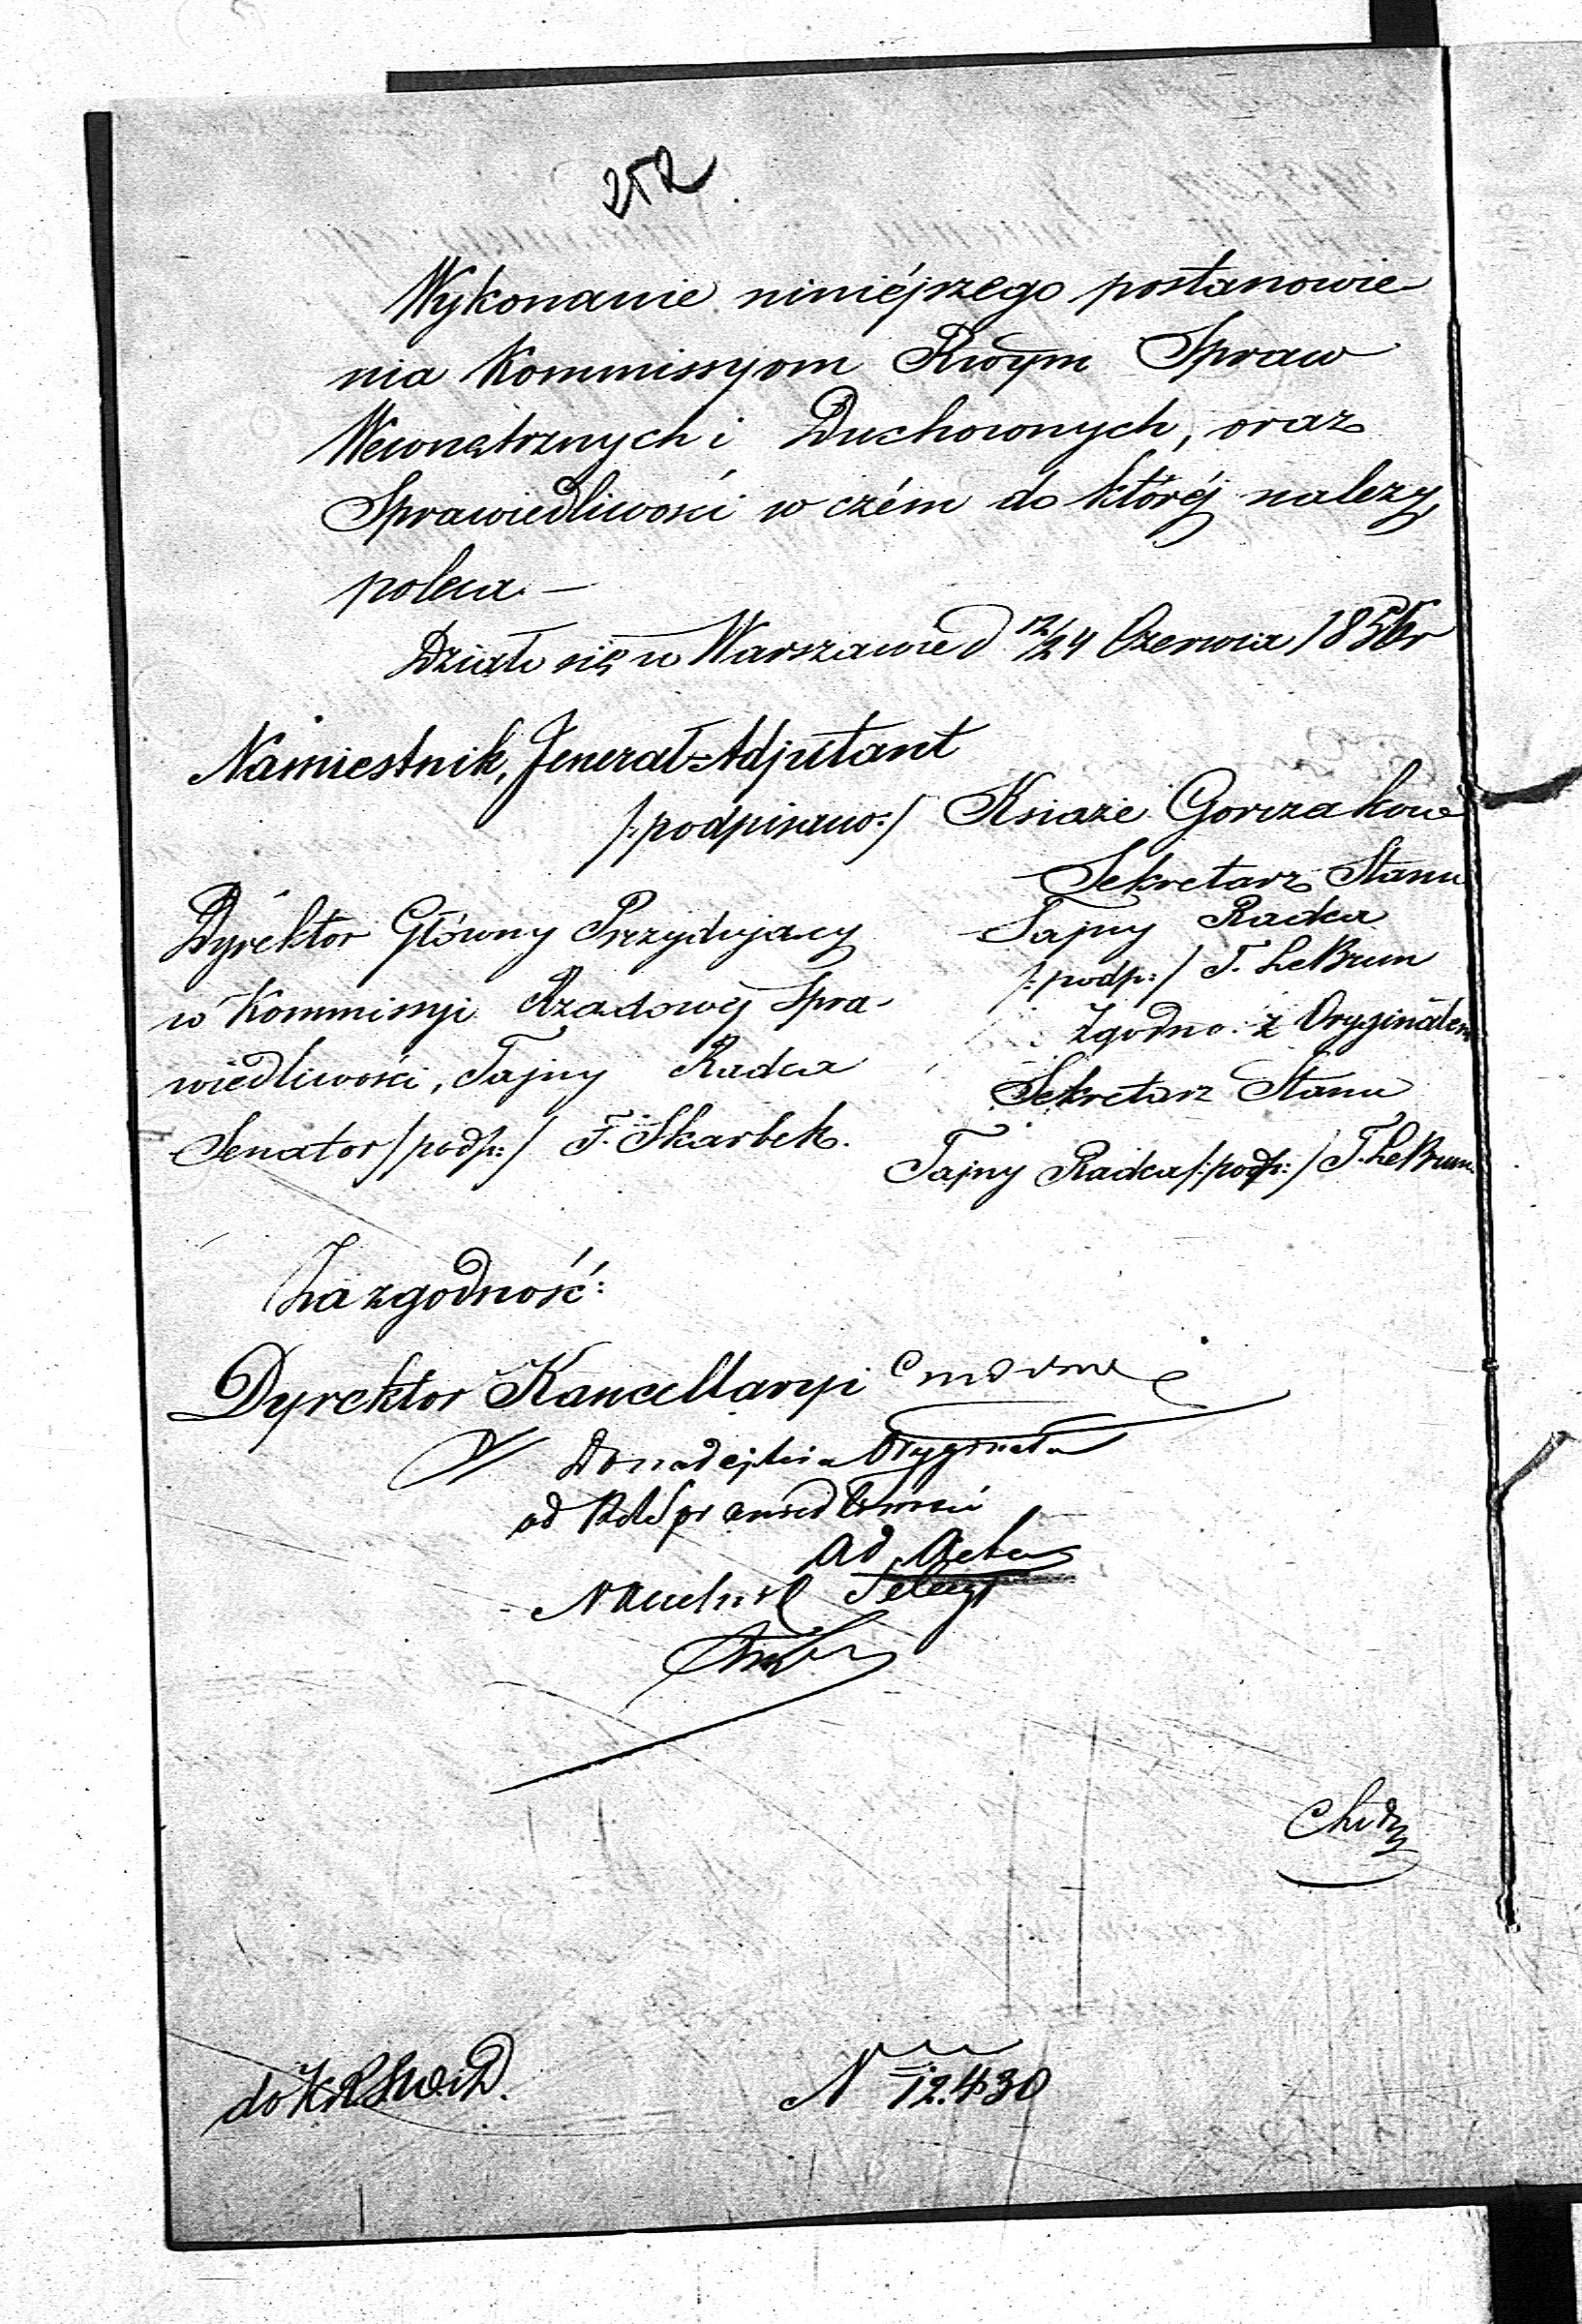 252
Wykonanie niniéjszego postanowie
nia Kommissyom Rwym Spraw
Wewnętrznych i Duchownych, oraz
Sprawiedliwości w czém do któréj należy,
poleca. —
Działo się w Warszawie d 12/24 Czerwca 1856 r
Namiestnik, Jenerał-Adjutant
/:podpisano:/ Książe Gorczakow
Sekretarz Stanu
Tajny Radca
/:podp:/ T. LeBrun
Dyrektor Główny Prezydujący
w Kommissyi Rządowéj Spra-
wiedliwości, Tajny Radca
Senator /podp:/ F. Skarbek.
Zgodno: z Oryginałem
Sekretarz Stanu
Tajny Radca /:podp:/ T. LeBrun
Za zgodność:
Dyrektor Kancellaryi
Do nadejścia Oryginału
od Sprawiedliwości
ad Acta
Naczelnik
do KRSWiD.
N 12.430